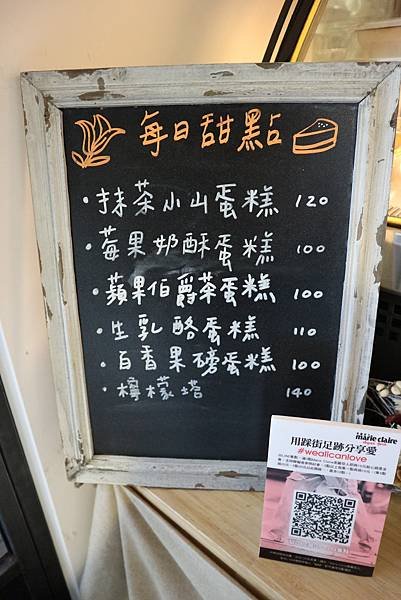 每日甜點
·抹茶小山蛋糕 120
·莓果奶酥蛋糕 100
·蘋果伯爵茶蛋糕 100
·生乳酪蛋糕 110
·百香果磅蛋糕 100
·檸檬塔 140
marie claire
用踩街足跡分享愛
#wealicanlove